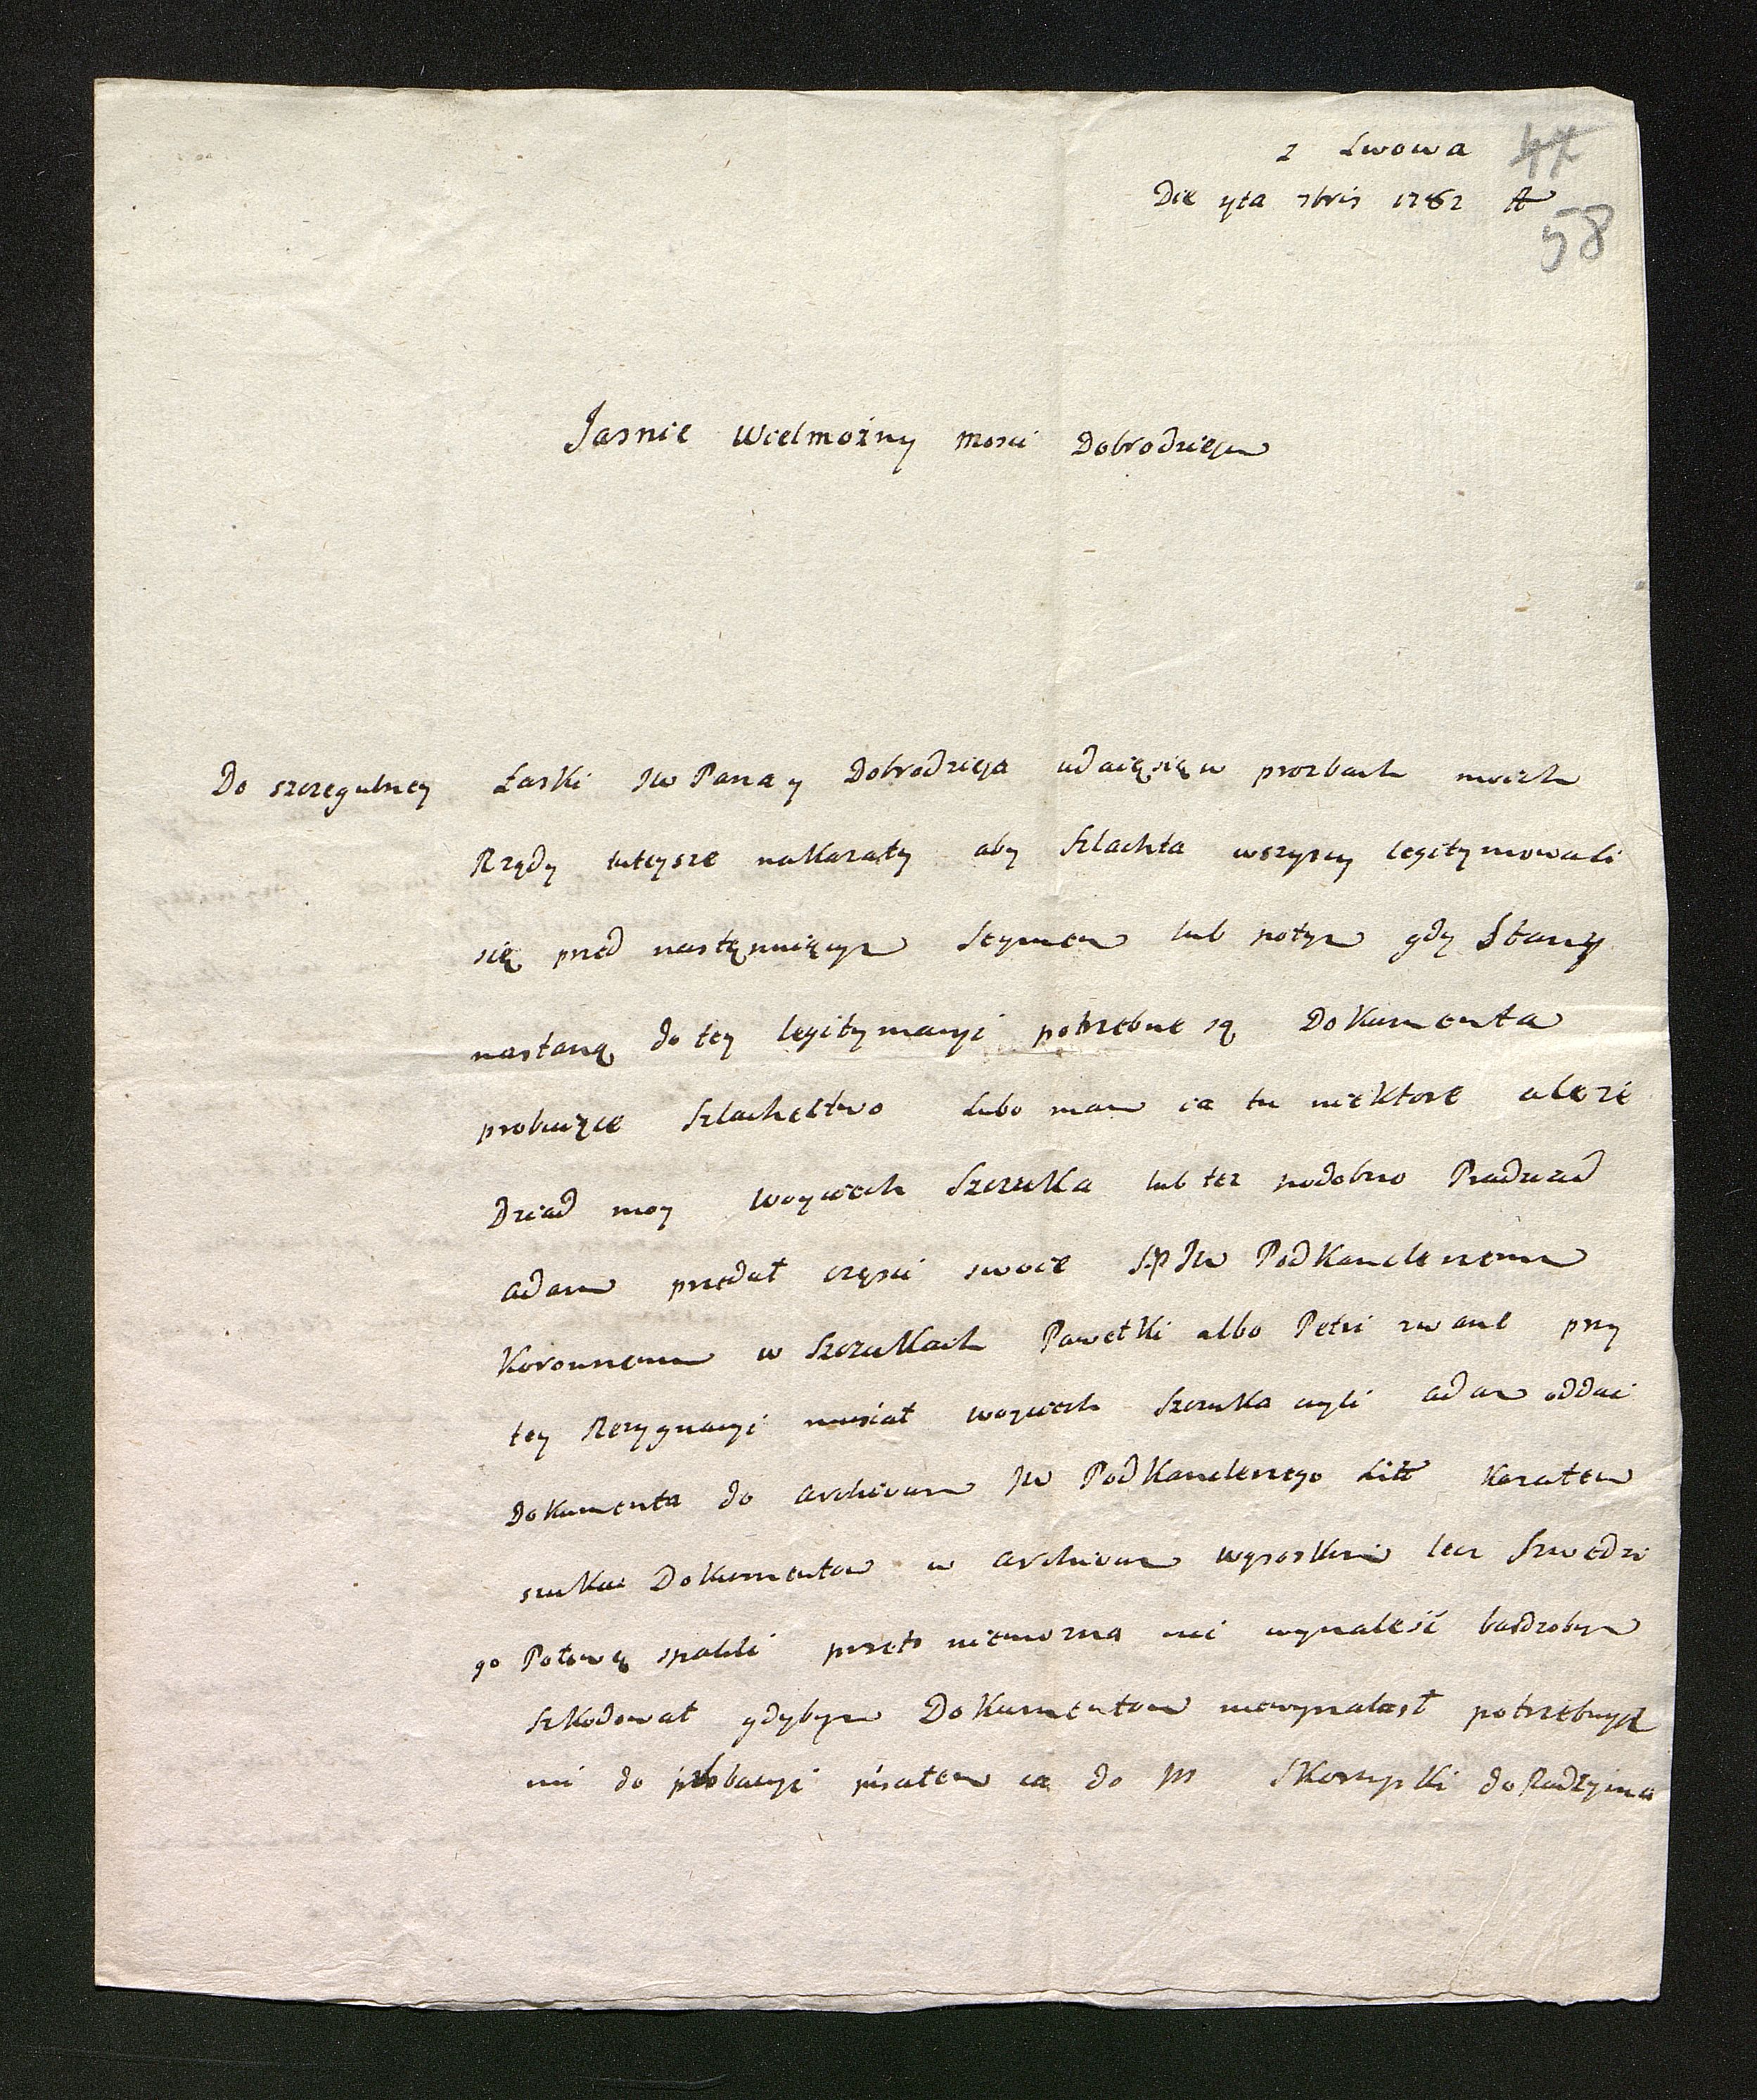 z Lwowa 47
Die 4ta 7bris 1782 A
58
Jasnie Wielmozny Mosci Dobrodzieju
Do szczegulney Łaski JW Pana y Dobrodzieja udaię się w prozbach moich
Rządy tuteysze nakazały aby Szlachta wszyscy legitymowali
się przed następuiącym Seymem lub potym gdy Stany
nastaną do tey legitymacyi potrzebne są Dokumenta
probuiące Szlachectwo Lubo mam ia tu niektore ale ze
Dziad moy Woyciech Szczuka lub tez podobno Pradziad
adam przedał częsci swoie SP JW PodKanclerzemu
Koronnemu w Szczukach Pawełki albo Petri zwane przy
tey Rezygnacyi musiał woyciech Szczuka czyli adam oddac
Dokumenta do archivum JW PodKanclerzego Litt Kazałem
szukac Dokumentow w archivum wysockim lecz Szwedzi
go Połowę spalili przeto niemozna mi wynalesć bardzobym
Szkodował gdybym Dokumentow niewynalasł potrzebnych
mi do probacyi pisałem ia do JP Skorupki do Radzyma